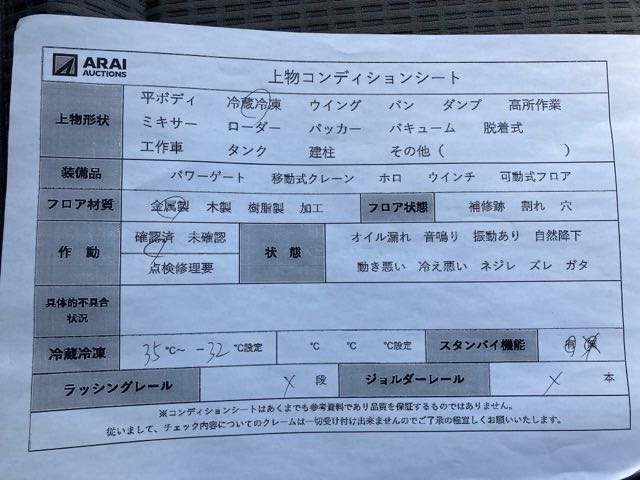 ARAI
AUCTIONS
上物コンディションシート
上物形状
平ボディ 冷蔵冷凍 ウイング バン ダンプ 高所作業
ミキサー ローダー パッカー バキューム 脱着式
工作車 タンク 建柱 その他( )
装備品 パワーゲート 移動式クレーン ホロ ウインチ 可動式フロア
フロア材質 金属製 木製 樹脂製 加工 フロア状態 補修跡 割れ 穴
作動 確認済 未確認 状態 オイル漏れ 音鳴り 振動あり 自然降下
点検修理要 動き悪い 冷え悪い ネジレ ズレ ガタ
具体的不具合
状況
冷蔵冷凍 35℃~ -32℃設定 ℃ ℃ ℃設定 スタンバイ機能
ラッシングレール X 段 ジョルダーレール X 本
※コンディションシートはあくまでも参考資料であり品質を保証するものではありません。
従いまして、チェック内容についてのクレームは一切受け付け出来ませんのでご了承の程宜しくお願いいたします。